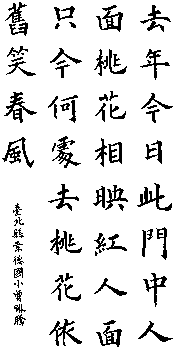 去年今日此門中人
面桃花相映紅人面
只今何處去桃花依
舊笑春風
臺北縣崇德國小曾琳騰